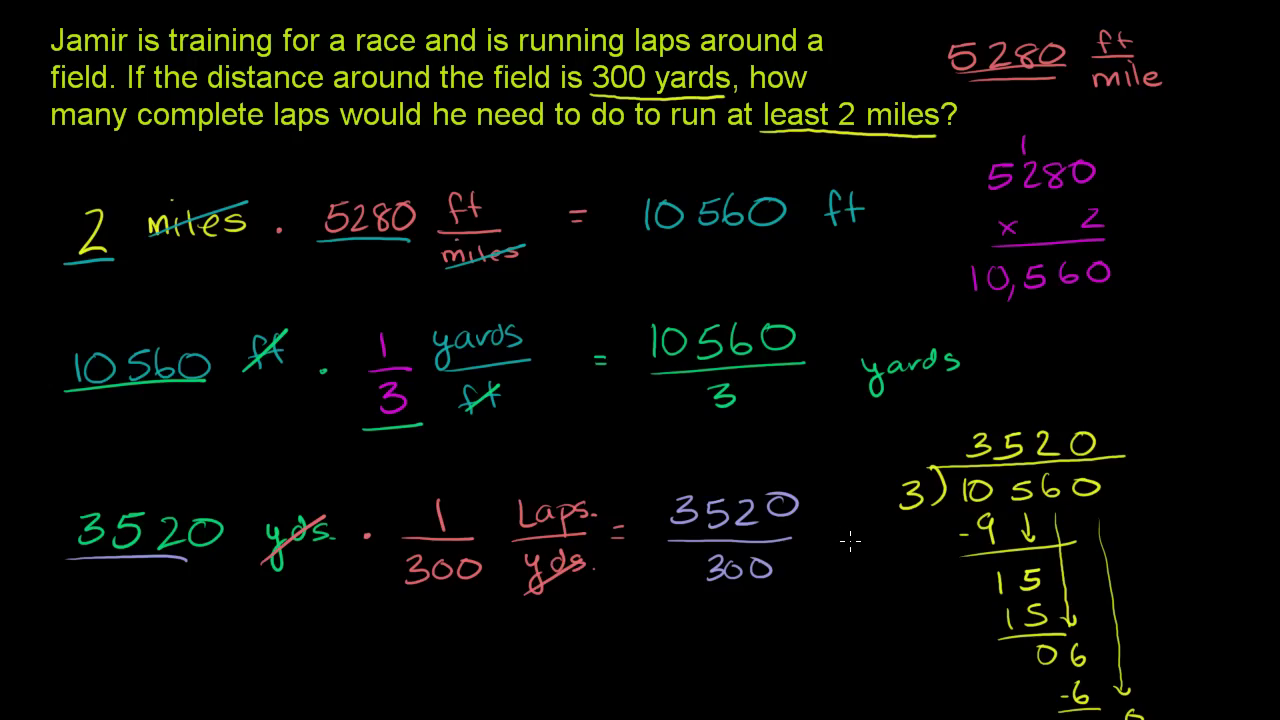 Jamir is training for a race and is running laps around a
field. If the distance around the field is 300 yards, how
many complete laps would he need to do to run at least 2 miles?
5280 ft/mile
2 miles · 5280 ft/miles = 10560 ft
1
5280
x 2
10,560
10560 ft · 1/3 yards/ft = 10560/3 yards
3520 yds. · 1/300 Laps./yds. = 3520/300
3520
3)10560
-9
15
15
06
-6